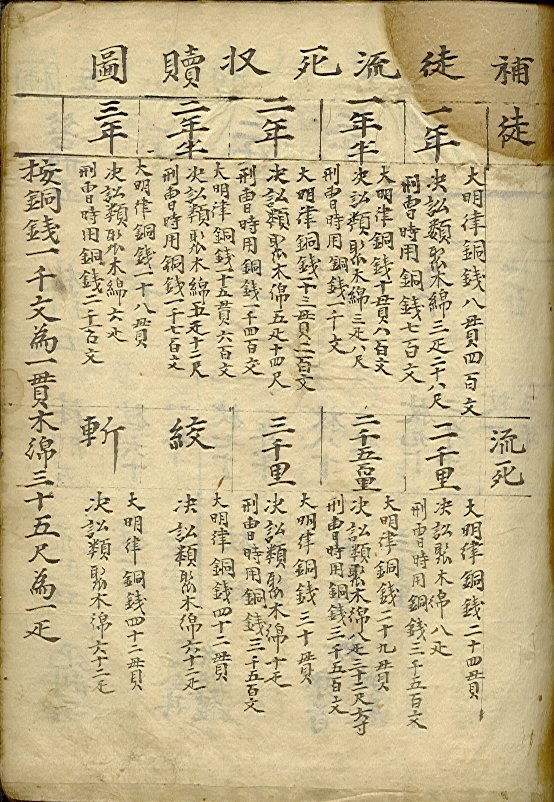 補徒流死収贖圖
徒
一年
大明律銅錢八貫四百文
决訟類聚木綿三疋二十八尺
刑曺時用銅錢七百文
一年半
大明律銅錢十貫八百文
决訟類聚木綿三疋八尺
刑曺時用銅錢一千文
二年
大明律銅錢十三貫二百文
决訟類聚木綿五疋十四尺
刑曺時用銅錢一千四百文
二年半
大明律銅錢十五貫六百文
决訟類聚木綿五疋十二尺
刑曺時用銅錢一千七百文
三年
大明律銅錢一十八貫
决訟類聚木綿六疋
刑曺時用銅錢二千百文
流死
二千里
大明律銅錢二十四貫
决訟聚木綿八疋
刑曺時用銅錢三千五百文
二千五百里
大明律銅錢二十九貫
决訟類聚木綿八疋三十二尺六寸
刑曺時用銅錢三千五百文
三千里
大明律銅錢三十貫
决訟類聚木綿十疋
刑曺時用銅錢三千五百文
絞
大明律銅錢四十二貫
决訟類聚木綿六十二疋
斬
大明律銅錢四十二貫
决訟類聚木綿六十二疋
按銅錢一千文為一貫木綿三十五尺為一疋